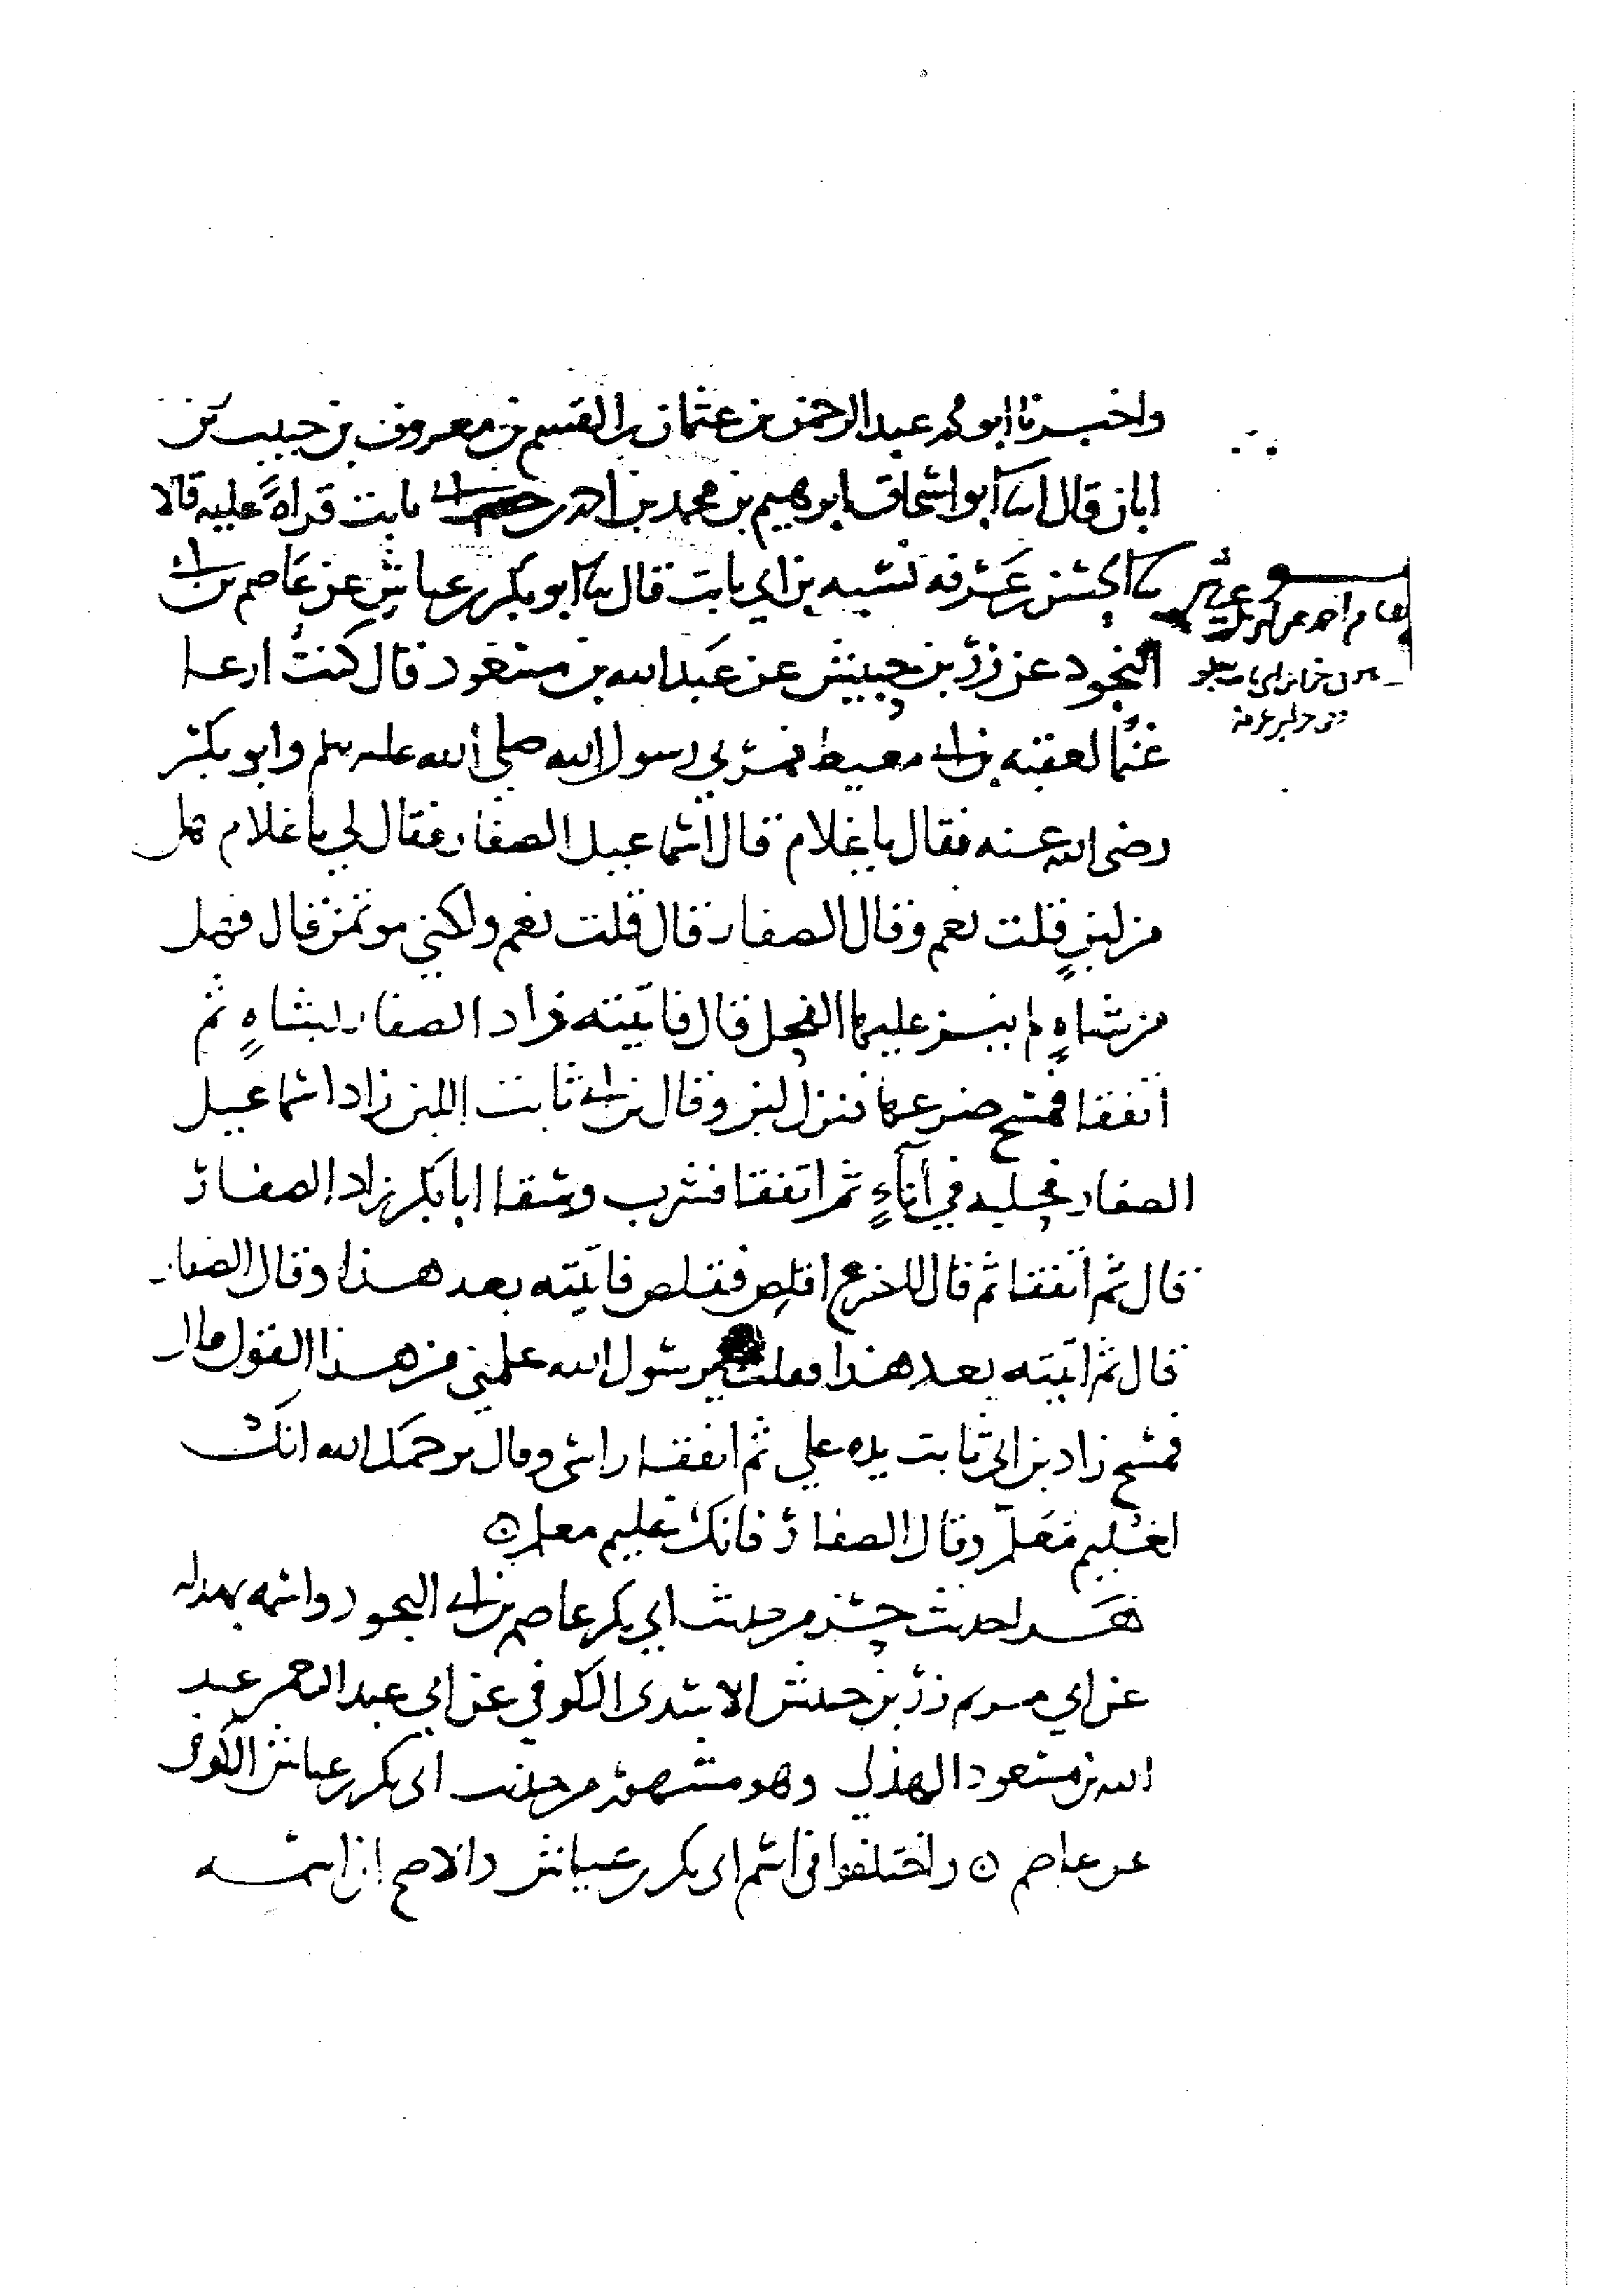 واخبرنا ابو محمد عبد الرحمن بن عثمان بن القسم بن معروف بن حبيب بن
ابان قال انبا ابو اسحاق ابرهيم بن محمد بن احمد بن ابي ثابت قراةً عليه قالا
ثنا الحسن بن عرفه نسبه بن ابي ثابت قال ثنا ابو بكر بن عياش عن عاصم بن ابي
النجود عن زر بن حبيش عن عبد الله بن مسعود قال كنت ارعا
غنما لعقبه بن ابي معيط فمر بي رسول الله صلى الله عليه وسلم وابو بكر
رضى الله عنه فقال يا غلام قال اسماعيل الصفار فقال لي يا غلام هل
من لبنٍ قلت نعم وقال الصفار قال قلت نعم ولكني موتمن قال فهل
من شاهٍ لم ينز عليها الفحل قال فاتيته زاد الصفار بشاهٍ ثم
اتفقا فمسح ضرعها فنزل لبن وقال بن ابي ثابت اللبن زاد اسماعيل
الصفار فحلبه في اناءٍ ثم اتفقا فشرب وسقا ابا بكر زاد الصفار
قال ثم اتفقا ثم قال للضرع اقلص فقلص فاتيته بعد هذا وقال الصفار
قال ثم اتيته بعد هذا فقلت يرسول الله علمني من هذا القول قال
فمسح زاد بن ابي ثابت يده علي ثم اتفقا راسي وقال يرحمك الله انك
لغليم معلم وقال الصفار فانك غليم معلم
هذا حديث حسن من حديث ابي بكر عاصم بن ابي النجود واسمه بهدله
عن ابي مريم زر بن حبيش الاسدى الكوفي عن ابي عبد الرحمن عبد
الله بن مسعود الهذلي وهو مشهور من حديث ابي بكر بن عياش الكوفي
عن عاصم واختلفوا في اسم ابي بكر بن عياش والاصح ان اسمه